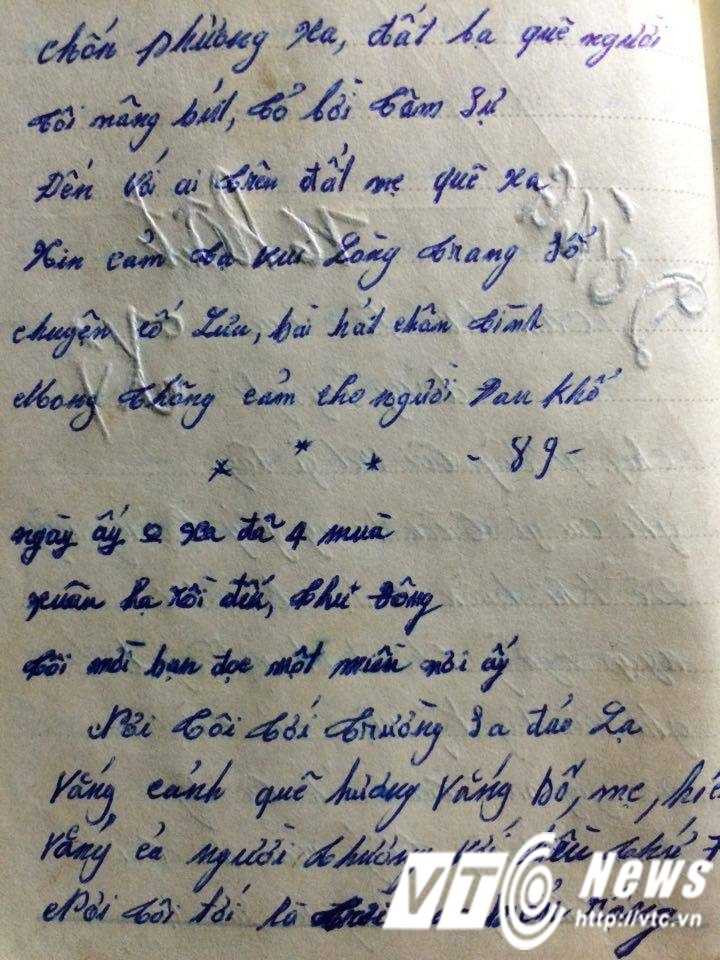 chốn phương xa, đất lạ quê người
tôi nâng bút, tỏ lời tâm sự
Đến với ai trên đất mẹ quê xa
Xin cảm tạ lòng trang sổ
chuyện cố Lưu, bài hát chân tình
Mong thông cảm cho người Đau khổ
- 89 -
ngày ấy xa đã 4 mùa
xuân hạ rồi đến, thu đông
tôi mời bạn đọc một miền nơi ấy
Nơi tôi tới trường sa đảo Lạ
Vắng cảnh quê hương Vắng Bố, mẹ,
Vắng cả người thương
Nơi tôi tới là
VTC News
http://vtc.vn